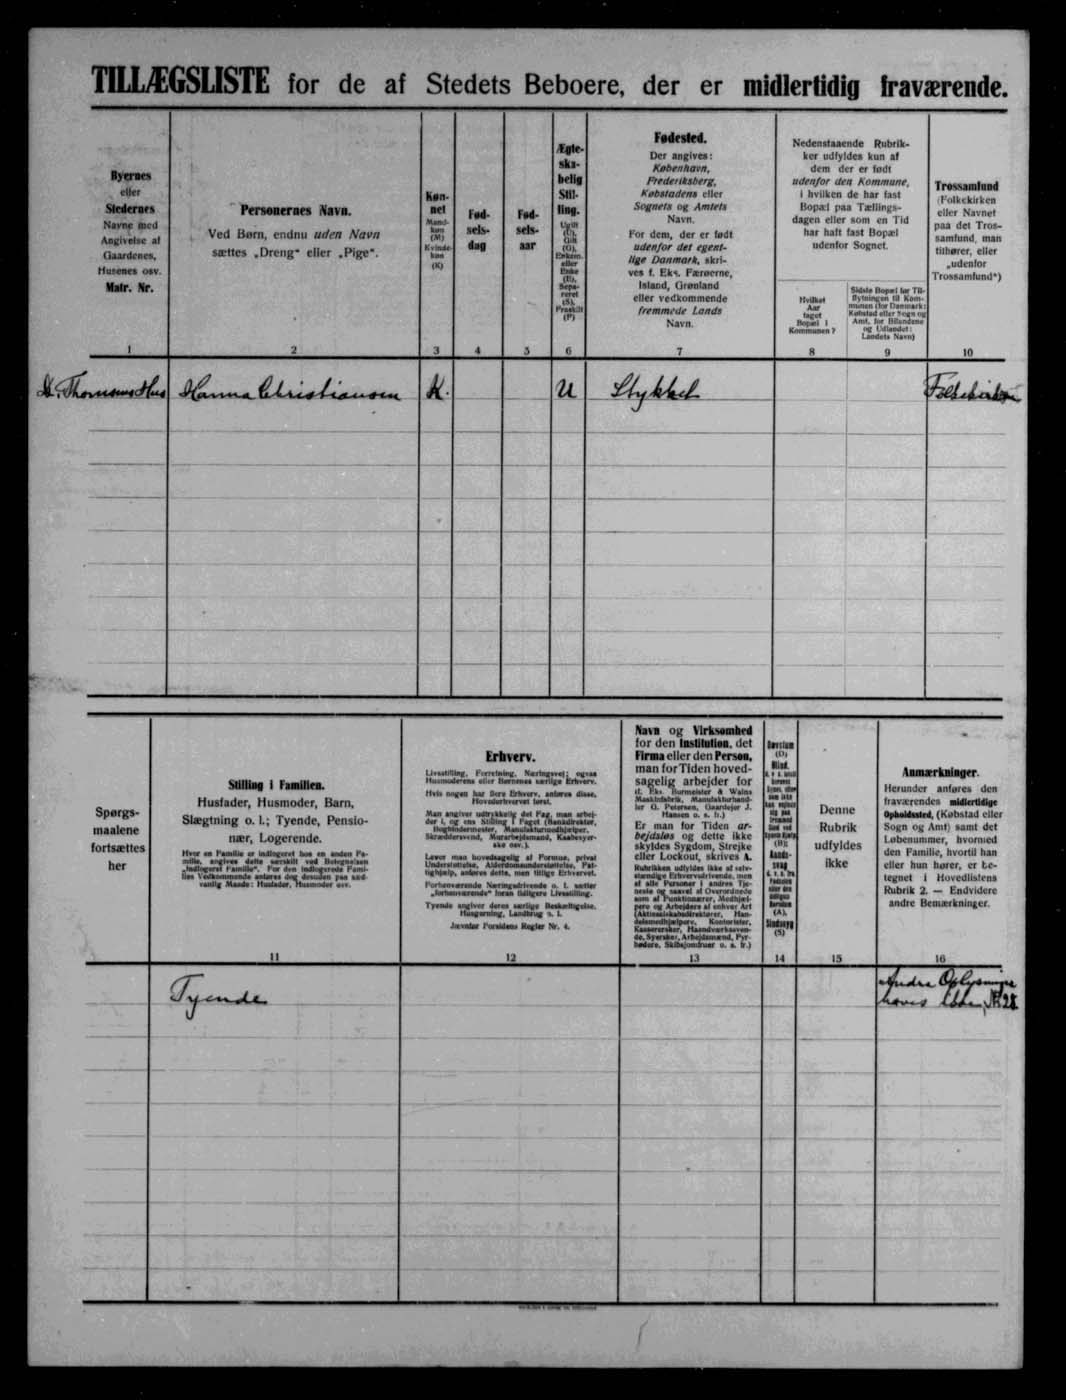 TILLÆGSLISTE for de af Stedets Beboere, der er midlertidig fraværende.
Byernes
eller
Stedernes
Navne med
Angivelse af
Gaardenes,
Husenes osv.
Matr. Nr.
1
Personernes Navn.
Ved Børn, endnu uden Navn
sættes „Dreng“ eller „Pige“.
2
Køn-
net
Mand-
køn
(M)
Kvinde-
køn
(K)
3
Fød-
sels-
dag
4
Fød-
sels-
aar
5
Ægte-
ska-
belig
Stil-
ling.
Ugift
(U),
Gift
(G),
Enkem.
eller
Enke
(E),
Sepa-
reret
(S),
Fraskilt
(F)
6
Fødested.
Der angives:
København,
Frederiksberg,
Købstadens eller
Sognets og Amtets
Navn.
For dem, der er født
udenfor det egent-
lige Danmark, skri-
ves f. Eks. Færøerne,
Island, Grønland
eller vedkommende
fremmede Lands
Navn.
7
Nedenstaaende Rubrik-
ker udfyldes kun af
dem der er født
udenfor den Kommune,
i hvilken de har fast
Bopæl paa Tællings-
dagen eller som en Tid
har haft fast Bopæl
udenfor Sognet.
Hvilket
Aar
taget
Bopæl i
Kommunen?
8
Sidste Bopæl før Til-
flytningen til Kom-
munen (for Danmark:
Købstad eller Sogn og
Amt, for Bilandene
og Udlandet:
Landets Navn)
9
Trossamfund
(Folkekirken
eller Navnet
paa det Tros-
samfund, man
tilhører, eller
„udenfor
Trossamfund“)
10
Thomsens Hus Hanna Christiansen K. U Stykket Folkekirken
Spørgs-
maalene
fortsættes
her
Stilling i Familien.
Husfader, Husmoder, Barn,
Slægtning o. l.; Tyende, Pensio-
nær, Logerende.
Hvor en Familie er indlogeret hos en anden Fa-
milie, angives dette særskilt ved Betegnelsen
„indlogeret Familie“. For den indlogerede Fami-
lies Vedkommende anføres dog desuden paa sæd-
vanlig Maade: Husfader, Husmoder osv.
11
Erhverv.
Livsstilling, Forretning, Næringsvej; ogsaa
Husmoderens eller Børnenes særlige Erhverv.
Hvis nogen har flere Erhverv, anføres disse,
Hovederhvervet først.
Man angiver udtrykkelig det Fag, man arbej-
der i, og ens Stilling i Faget (Bankdirektør,
Bogbindermester, Manufakturmedhjælper,
Skræddersvend, Murarbejdsmand, Kaabesyer-
ske osv.).
Lever man hovedsagelig af Formue, privat
Understøttelse, Alderdomsunderstøttelse, Fat-
tighjælp, anføres dette, men tillige Erhvervet.
Forhenværende Næringsdrivende o. l. sætter
„forhenværende“ foran tidligere Livsstilling.
Tyende angiver deres særlige Beskæftigelse,
Husgerning, Landbrug o. l.
Jævnfør Forsidens Regler Nr. 4.
12
Navn og Virksomhed
for den Institution, det
Firma eller den Person,
man for Tiden hoved-
sagelig arbejder for
(f. Eks. Burmeister & Wains
Maskinfabrik, Manufakturhand-
ler G. Petersen, Gaardejer J.
Hansen o. s. fr.)
Er man for Tiden ar-
bejdsløs og dette ikke
skyldes Sygdom, Strejke
eller Lockout, skrives A.
Rubrikken udfyldes ikke af selv-
stændige Erhvervsdrivende, men
af alle Personer i andres Tje-
neste og saavel af Overordnede
som af Funktionærer, Medhjæl-
pere og Arbejdere af enhver Art
(Aktieselskabsdirektører, Han-
delsmedhjælpere, Kontorister,
Kasserersker, Haandværkssven-
de, Syersker, Arbejdsmænd, Fyr-
bødere, Skibsjomfruer o. s. fr.)
13
Døvstum
(D)
Blind,
(B);
Aands-
svag
(A),
Sindssyg
(S)
14
Denne
Rubrik
udfyldes
ikke
15
Anmærkninger.
Herunder anføres den
fraværendes midlertidige
Opholdssted, (Købstad eller
Sogn og Amt) samt det
Løbenummer, hvormed
den Familie, hvortil han
eller hun hører, er be-
tegnet i Hovedlistens
Rubrik 2. — Endvidere
andre Bemærkninger.
16
Tyende
Andre Oplysninger
haves Nr. 28